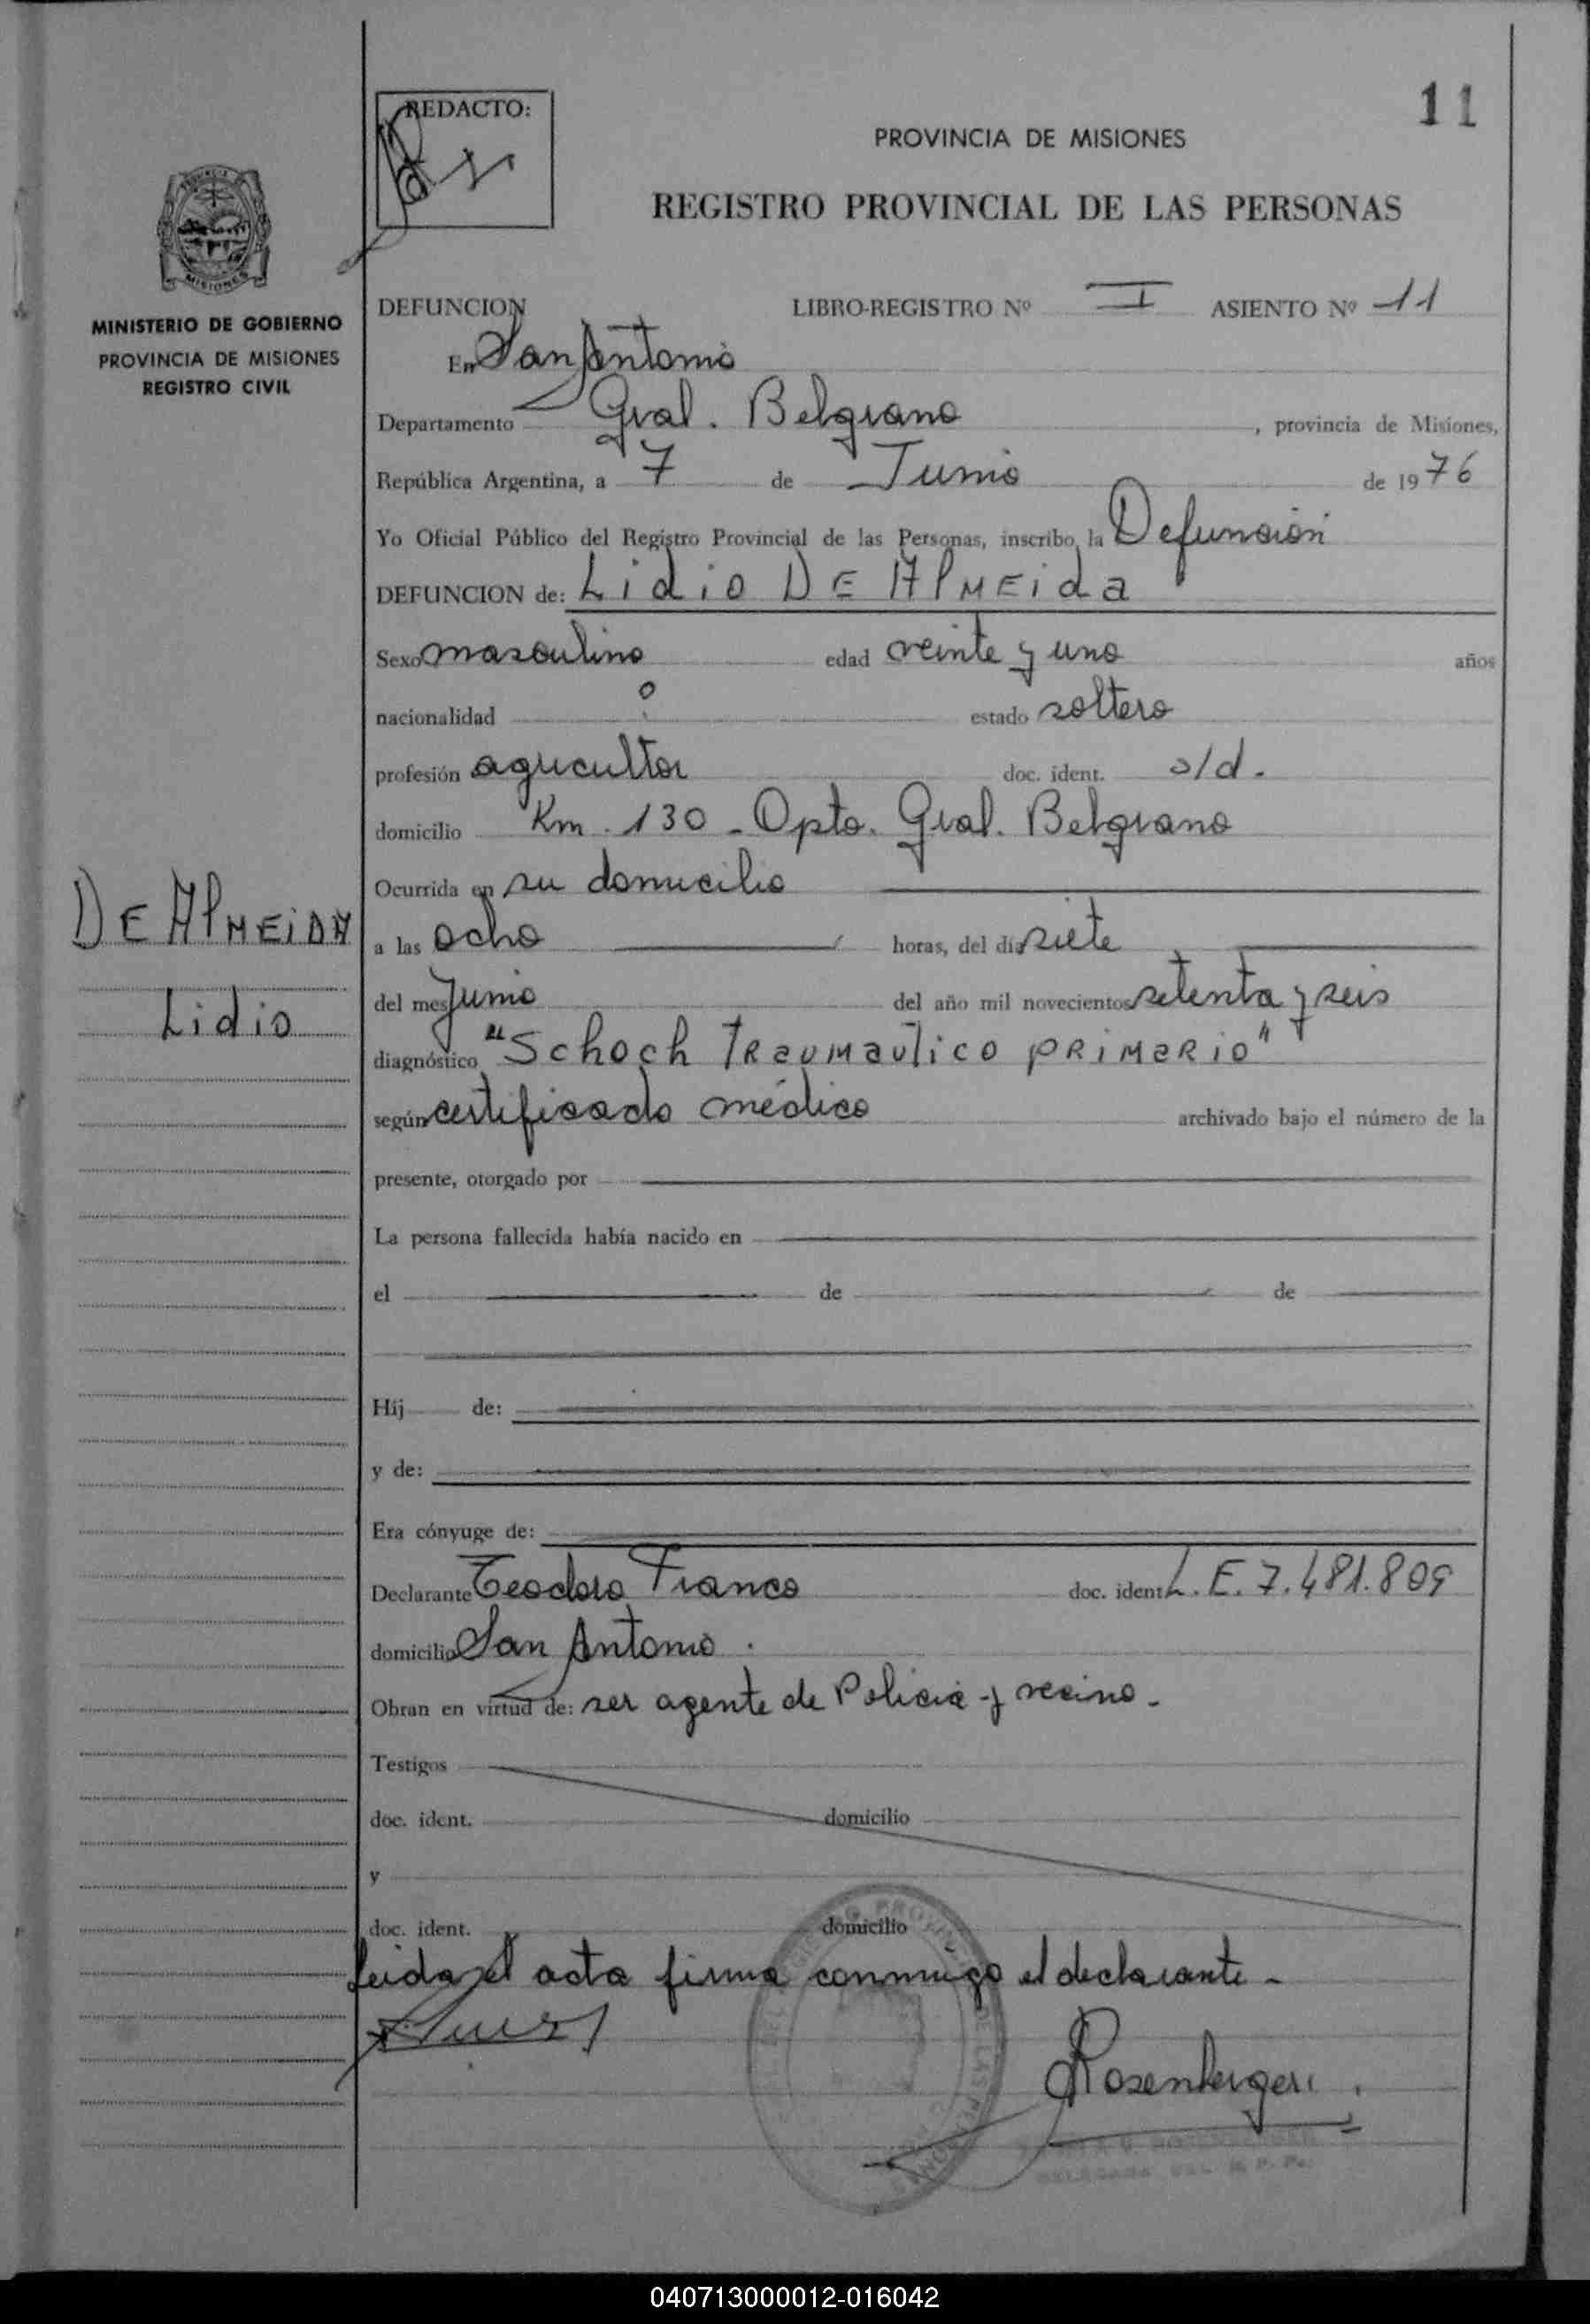 11
REDACTO:
PROVINCIA DE MISIONES
REGISTRO PROVINCIAL DE LAS PERSONAS
MISIONES
MINISTERIO DE GOBIERNO
PROVINCIA DE MISIONES
REGISTRO CIVIL
DEFUNCION LIBRO-REGISTRO Nº I ASIENTO Nº 11
En San Antonio
Departamento Gral. Belgrano, provincia de Misiones,
República Argentina, a 7 de Junio de 1976
Yo Oficial Público del Registro Provincial de las Personas, inscribo la Defunción
DEFUNCION de: Lidio DE AlMEida
Sexo masculino edad veinte y uno años
nacionalidad estado soltero
profesión agricultor doc. ident. s/d.
domicilio Km. 130 - Dpto. Gral. Belgrano
Ocurrida en su domicilio
a las ocho horas, del día siete
del mes Junio del año mil novecientos setenta y seis
diagnóstico "Schoch Traumautico primerio"
según certificado médico archivado bajo el número de la
presente, otorgado por
La persona fallecida había nacido en
el de de
Hij de:
y de:
Era cónyuge de:
Declarante Teodoro Franco doc. ident. L.E. 7.481.809
domicilio San Antonio.
Obran en virtud de: ser agente de Policia y vecino-
Testigos
doc. ident. domicilio
y
doc. ident. domicilio
Leida el acta firma conmigo el declarante-
Rosenberger
DE AlMEiDA
Lidio
040713000012-016042